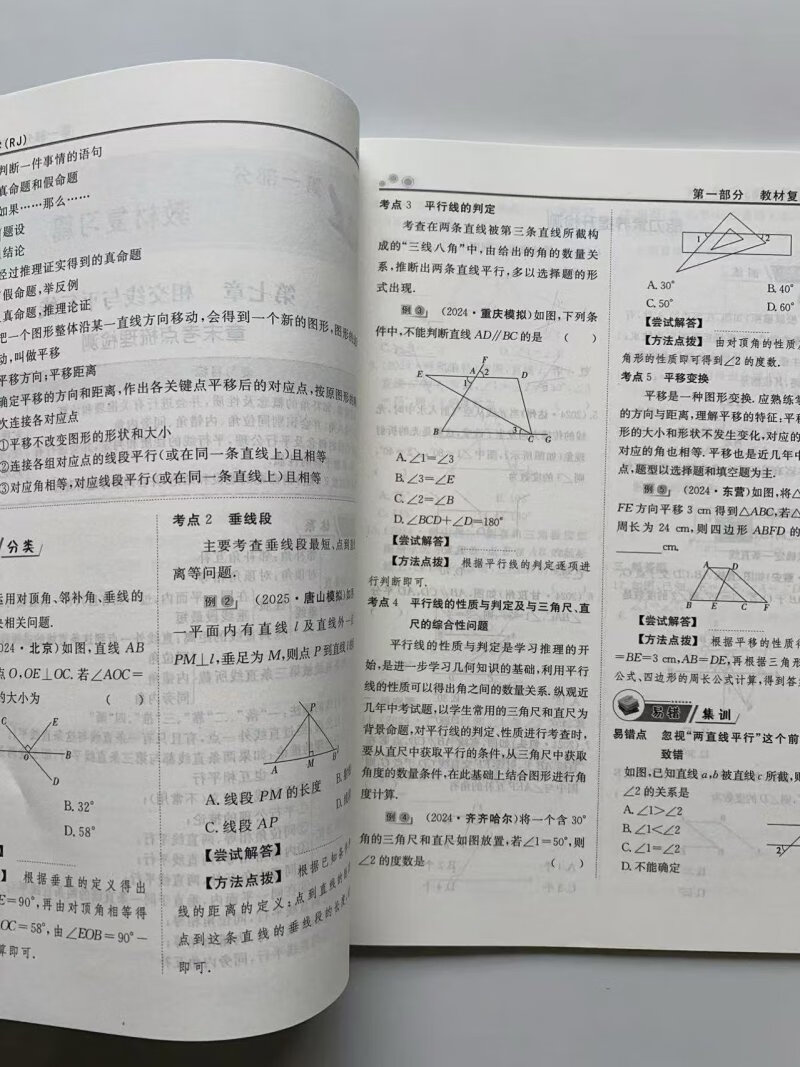 (RJ)
判断一件事情的语句
真命题和假命题
如果……那么……
题设
结论
经过推理证实得到的真命题
假命题,举反例
真命题,推理论证
把一个图形整体沿某一直线方向移动,会得到一个新的图形,图形的
动,叫做平移
平移方向;平移距离
确定平移的方向和距离,作出各关键点平移后的对应点,按原图形的
次连接各对应点
①平移不改变图形的形状和大小
②连接各组对应点的线段平行(或在同一条直线上)且相等
③对应角相等,对应线段平行(或在同一条直线上)且相等
分类
运用对顶角、邻补角、垂线的
决相关问题.
024·北京)如图,直线 AB
点O,OE⊥OC.若∠AOC=
的大小为 ( )
C E
O
B
D
B. 32°
D. 58°
根据垂直的定义得出
E=90°,再由对顶角相等得
OC=58°,由∠EOB=90°-
算即可.
考点 2 垂线段
主要考查垂线段最短,点到
离等问题.
例② (2025·唐山模拟)
一平面内有直线 l 及直线外一
PM⊥l,垂足为 M,则点 P 到直线
P
A M B l
A. 线段 PM 的长度
C. 线段 AP
【尝试解答】
【方法点拨】 根据已知
线的距离的定义:点到直线的
点到这条直线的垂线段的长度
即可.
第一部分 教材复
考点 3 平行线的判定
考查在两条直线被第三条直线所截构
成的“三线八角”中,由给出的角的数量关
系,推断出两条直线平行,多以选择题的形
式出现.
例③ (2024·重庆模拟)如图,下列条
件中,不能判断直线 AD∥BC 的是 ( )
F
E A 2 D
1
B 3 C G
A. ∠1=∠3
B. ∠3=∠E
C. ∠2=∠B
D. ∠BCD+∠D=180°
【尝试解答】
【方法点拨】 根据平行线的判定逐项进
行判断即可.
考点 4 平行线的性质与判定及与三角尺、直
尺的综合性问题
平行线的性质与判定是学习推理的开
始,是进一步学习几何知识的基础,利用平行
线的性质可以得出角之间的数量关系.纵观近
几年中考试题,以学生常用的三角尺和直尺为
背景命题,对平行线的判定、性质进行考查时,
要从直尺中获取平行的条件,从三角尺中获取
角度的数量条件,在此基础上结合图形进行角
度计算.
例④ (2024·齐齐哈尔)将一个含 30°
角的三角尺和直尺如图放置,若∠1=50°,则
∠2 的度数是 ( )
1 2
A. 30°
B. 40°
C. 50°
D. 60°
【尝试解答】
【方法点拨】 由对顶角的性质,
角形的性质即可得到∠2 的度数.
考点 5 平移变换
平移是一种图形变换.应熟练
的方向与距离,理解平移的特征:平
形的大小和形状不发生变化,对应的
对应的角也相等.平移也是近几年中
点,题型以选择题和填空题为主.
例⑤ (2024·东营)如图,将△
FE 方向平移 3 cm 得到△ABC,若△
周长为 24 cm,则四边形 ABFD 的
cm.
A D
B E C F
【尝试解答】
【方法点拨】 根据平移的性质
=BE=3 cm,AB=DE,再根据三角
公式、四边形的周长公式计算,得到答
易错 集训
易错点 忽视“两直线平行”这个前
致错
如图,已知直线 a,b 被直线 c 所截,则
∠2 的关系是
A. ∠1>∠2
B. ∠1<∠2
C. ∠1=∠2
D. 不能确定